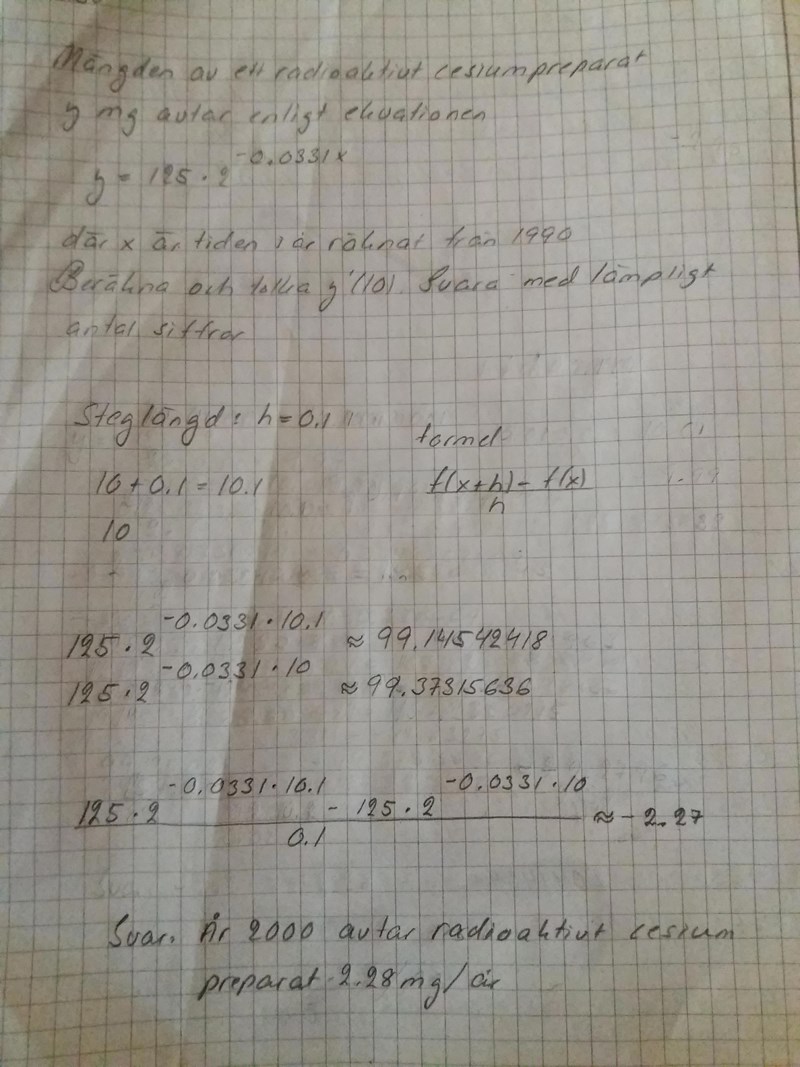 Mängden av ett radioaktivt cesiumpreparat
y mg avtar enligt ekvationen
y = 125 · 2^-0.0331x
där x är tiden i år räknat från 1990
Beräkna och tolka y'(10). Svara med lämpligt
antal siffror
Steglängd: h = 0.1
formel
10 + 0.1 = 10.1
f(x+h) - f(x)
h
10
125 · 2^-0.0331 · 10.1 ≈ 99.14542418
125 · 2^-0.0331 · 10 ≈ 99.37315636
125 · 2^-0.0331 · 10.1 - 125 · 2^-0.0331 · 10 ≈ - 2.27
0.1
Svar. År 2000 avtar radioaktivt cesium
preparat 2.28 mg/år